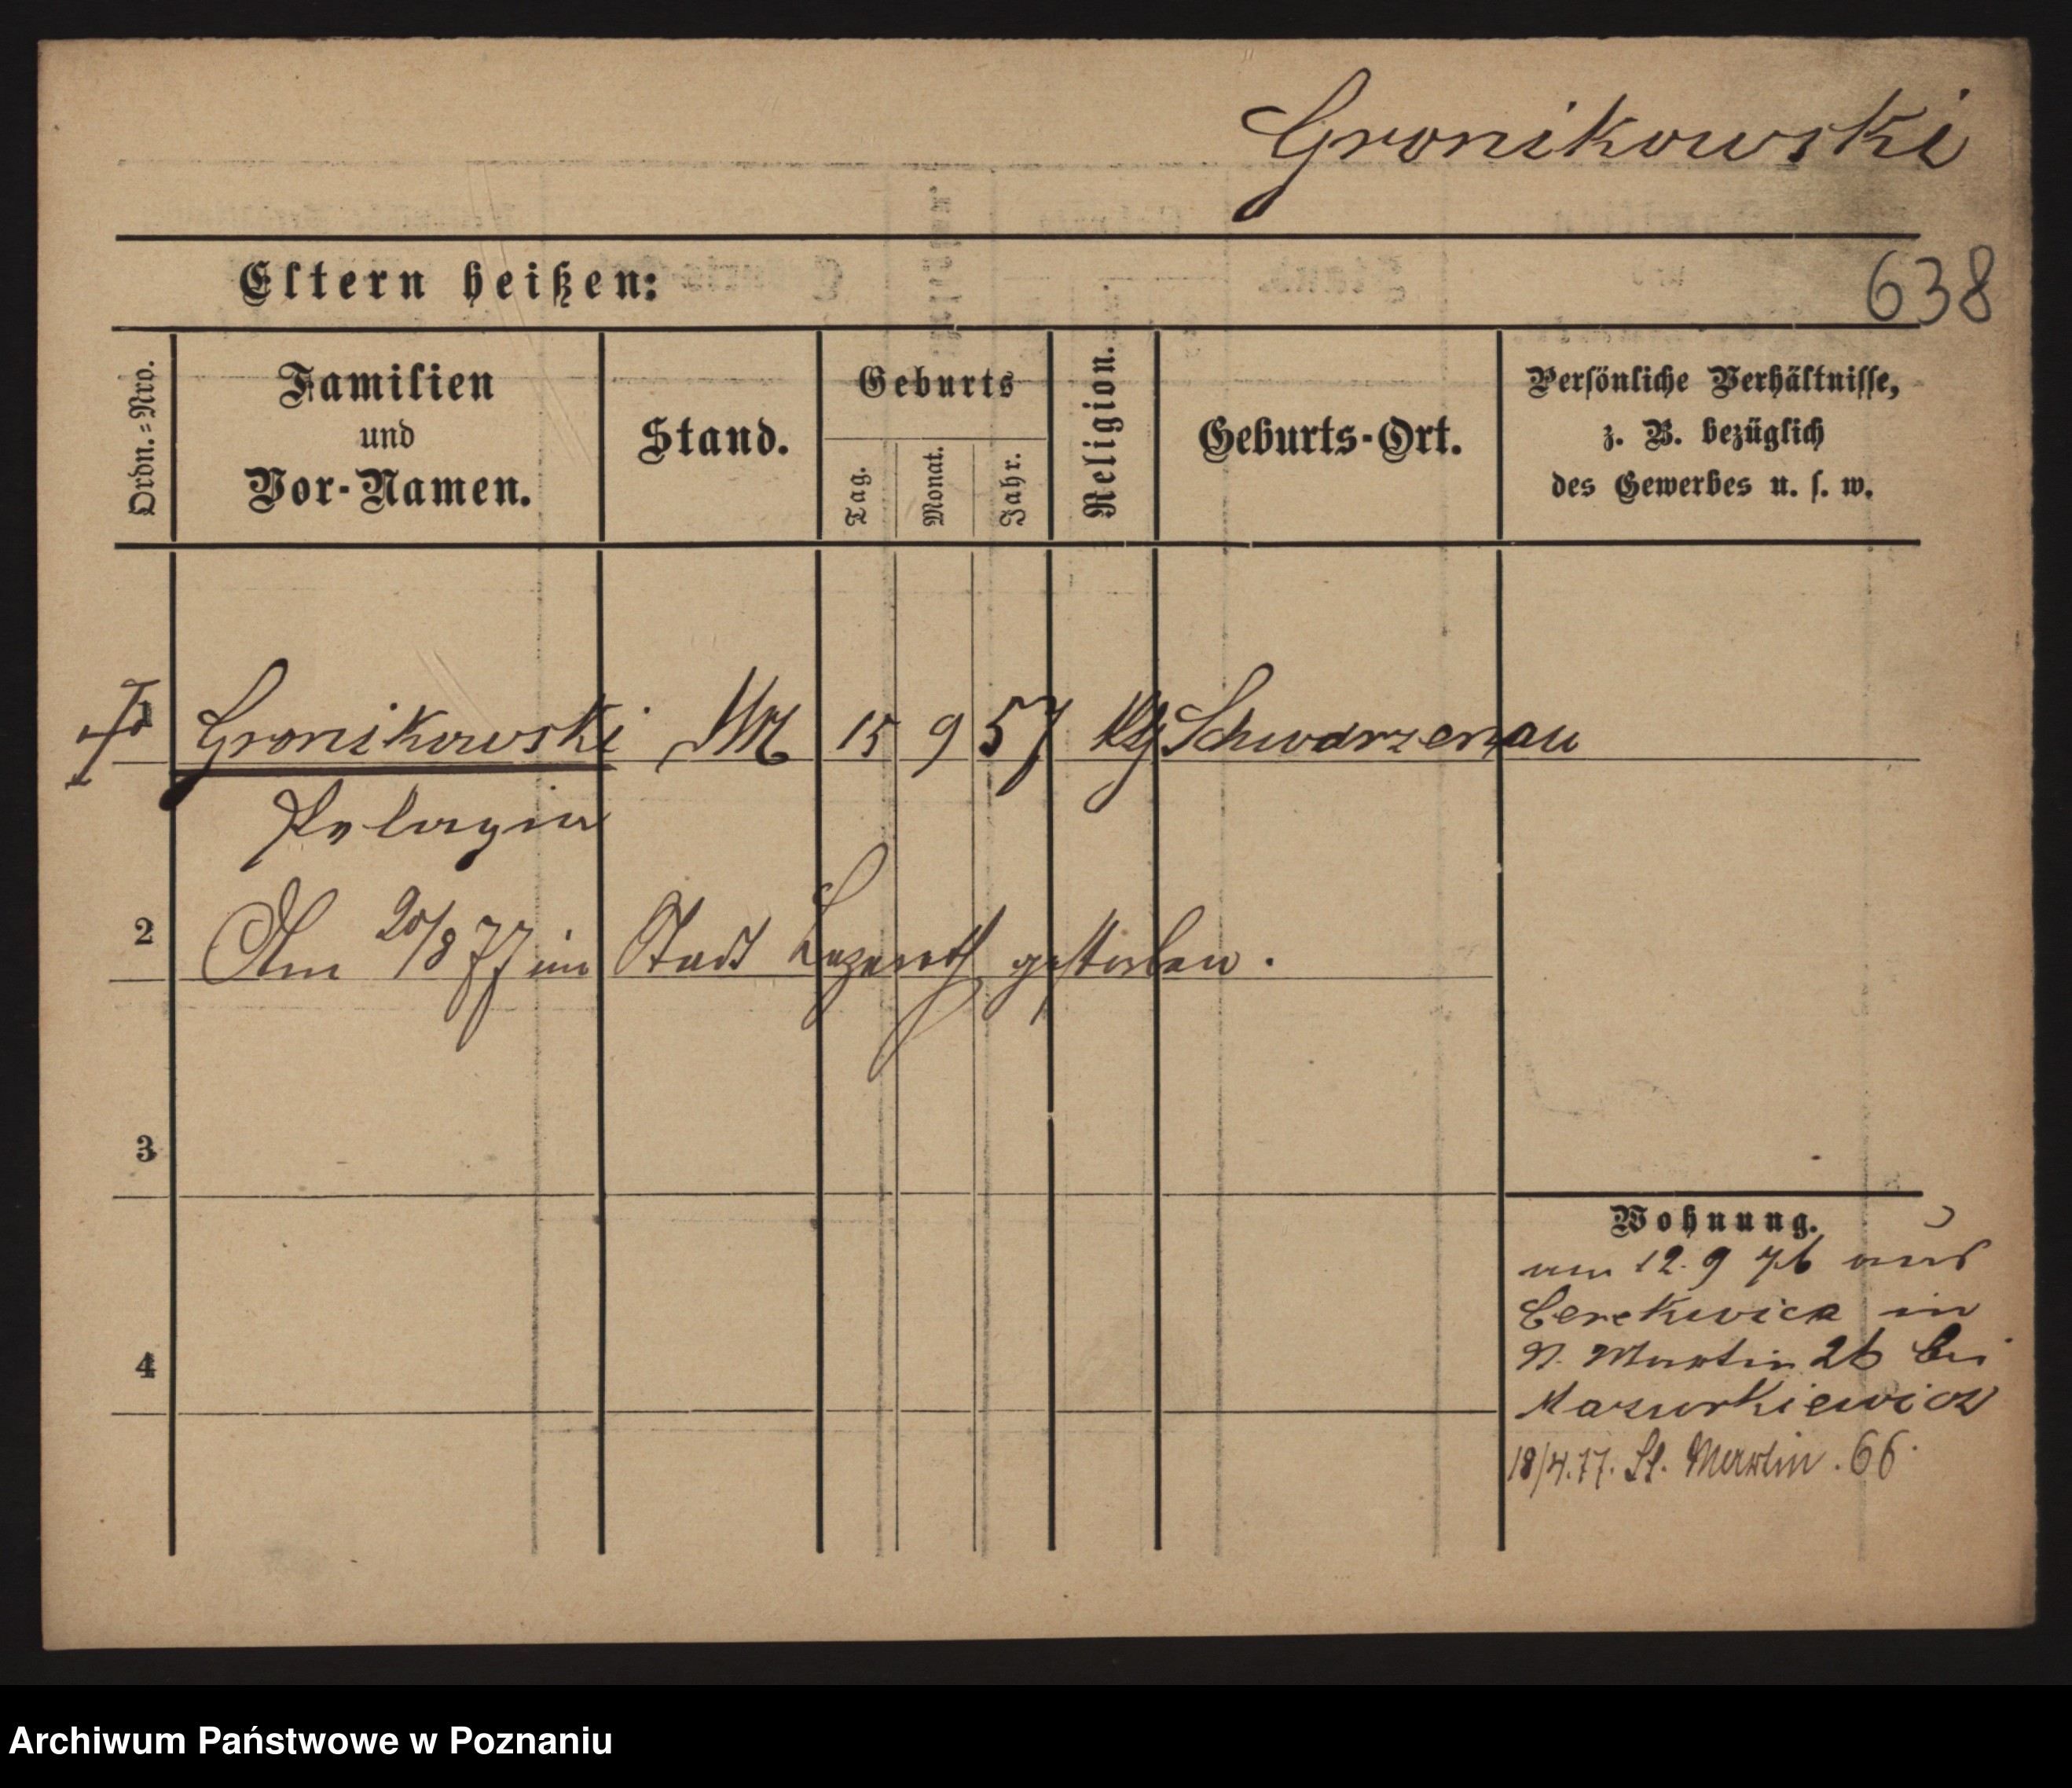 Gronikowski
Eltern heißen:
638
Ordn.=Nro.
Familien
und
Vor-Namen.
Stand.
Geburts
Tag.
Monat.
Jahr.
Religion.
Geburts-Ort.
Persönliche Verhältnisse,
z. B. bezüglich
des Gewerbes u. s. w.
1 Gronikowski 15 9 57 Schwarzenau
Pelagia
2 Am 20/8 77 im Stadt Lazareth gestorben.
3
4
Wohnung.
am 12. 9 76 aus
Cerekwica in
Martin 26 bei
Mazurkiewicz
18/4.77. St. Martin. 66.
Archiwum Państwowe w Poznaniu